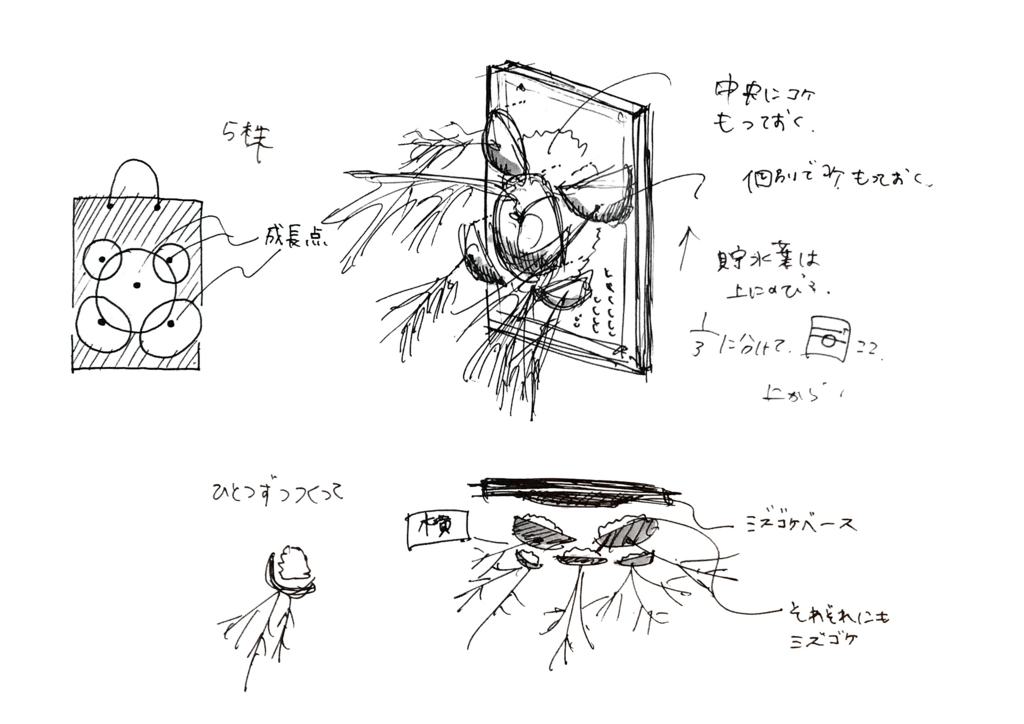 5株
成長点
中央にコケ
もっておく.
個別でコケもっておく.
貯水葉は
上にのびる.
1/3に分けて.
上から
ひとつずつつくって
ミズゴケベース
それぞれにも
ミズゴケ